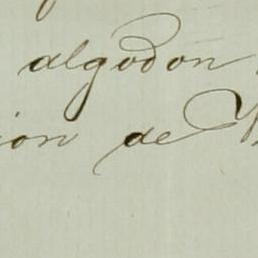 algodon
ion de